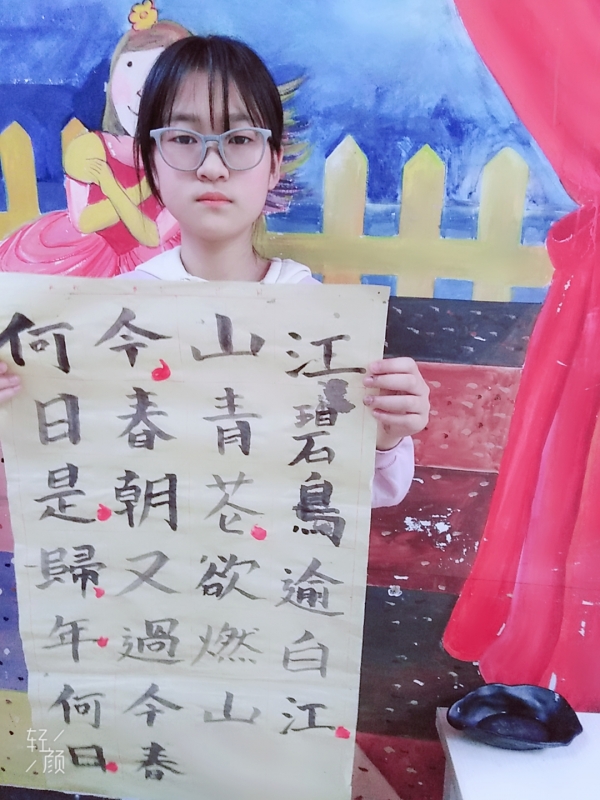 江碧鳥逾白江
山青花欲燃山
今春朝又過今春
何日是歸年何日
轻颜